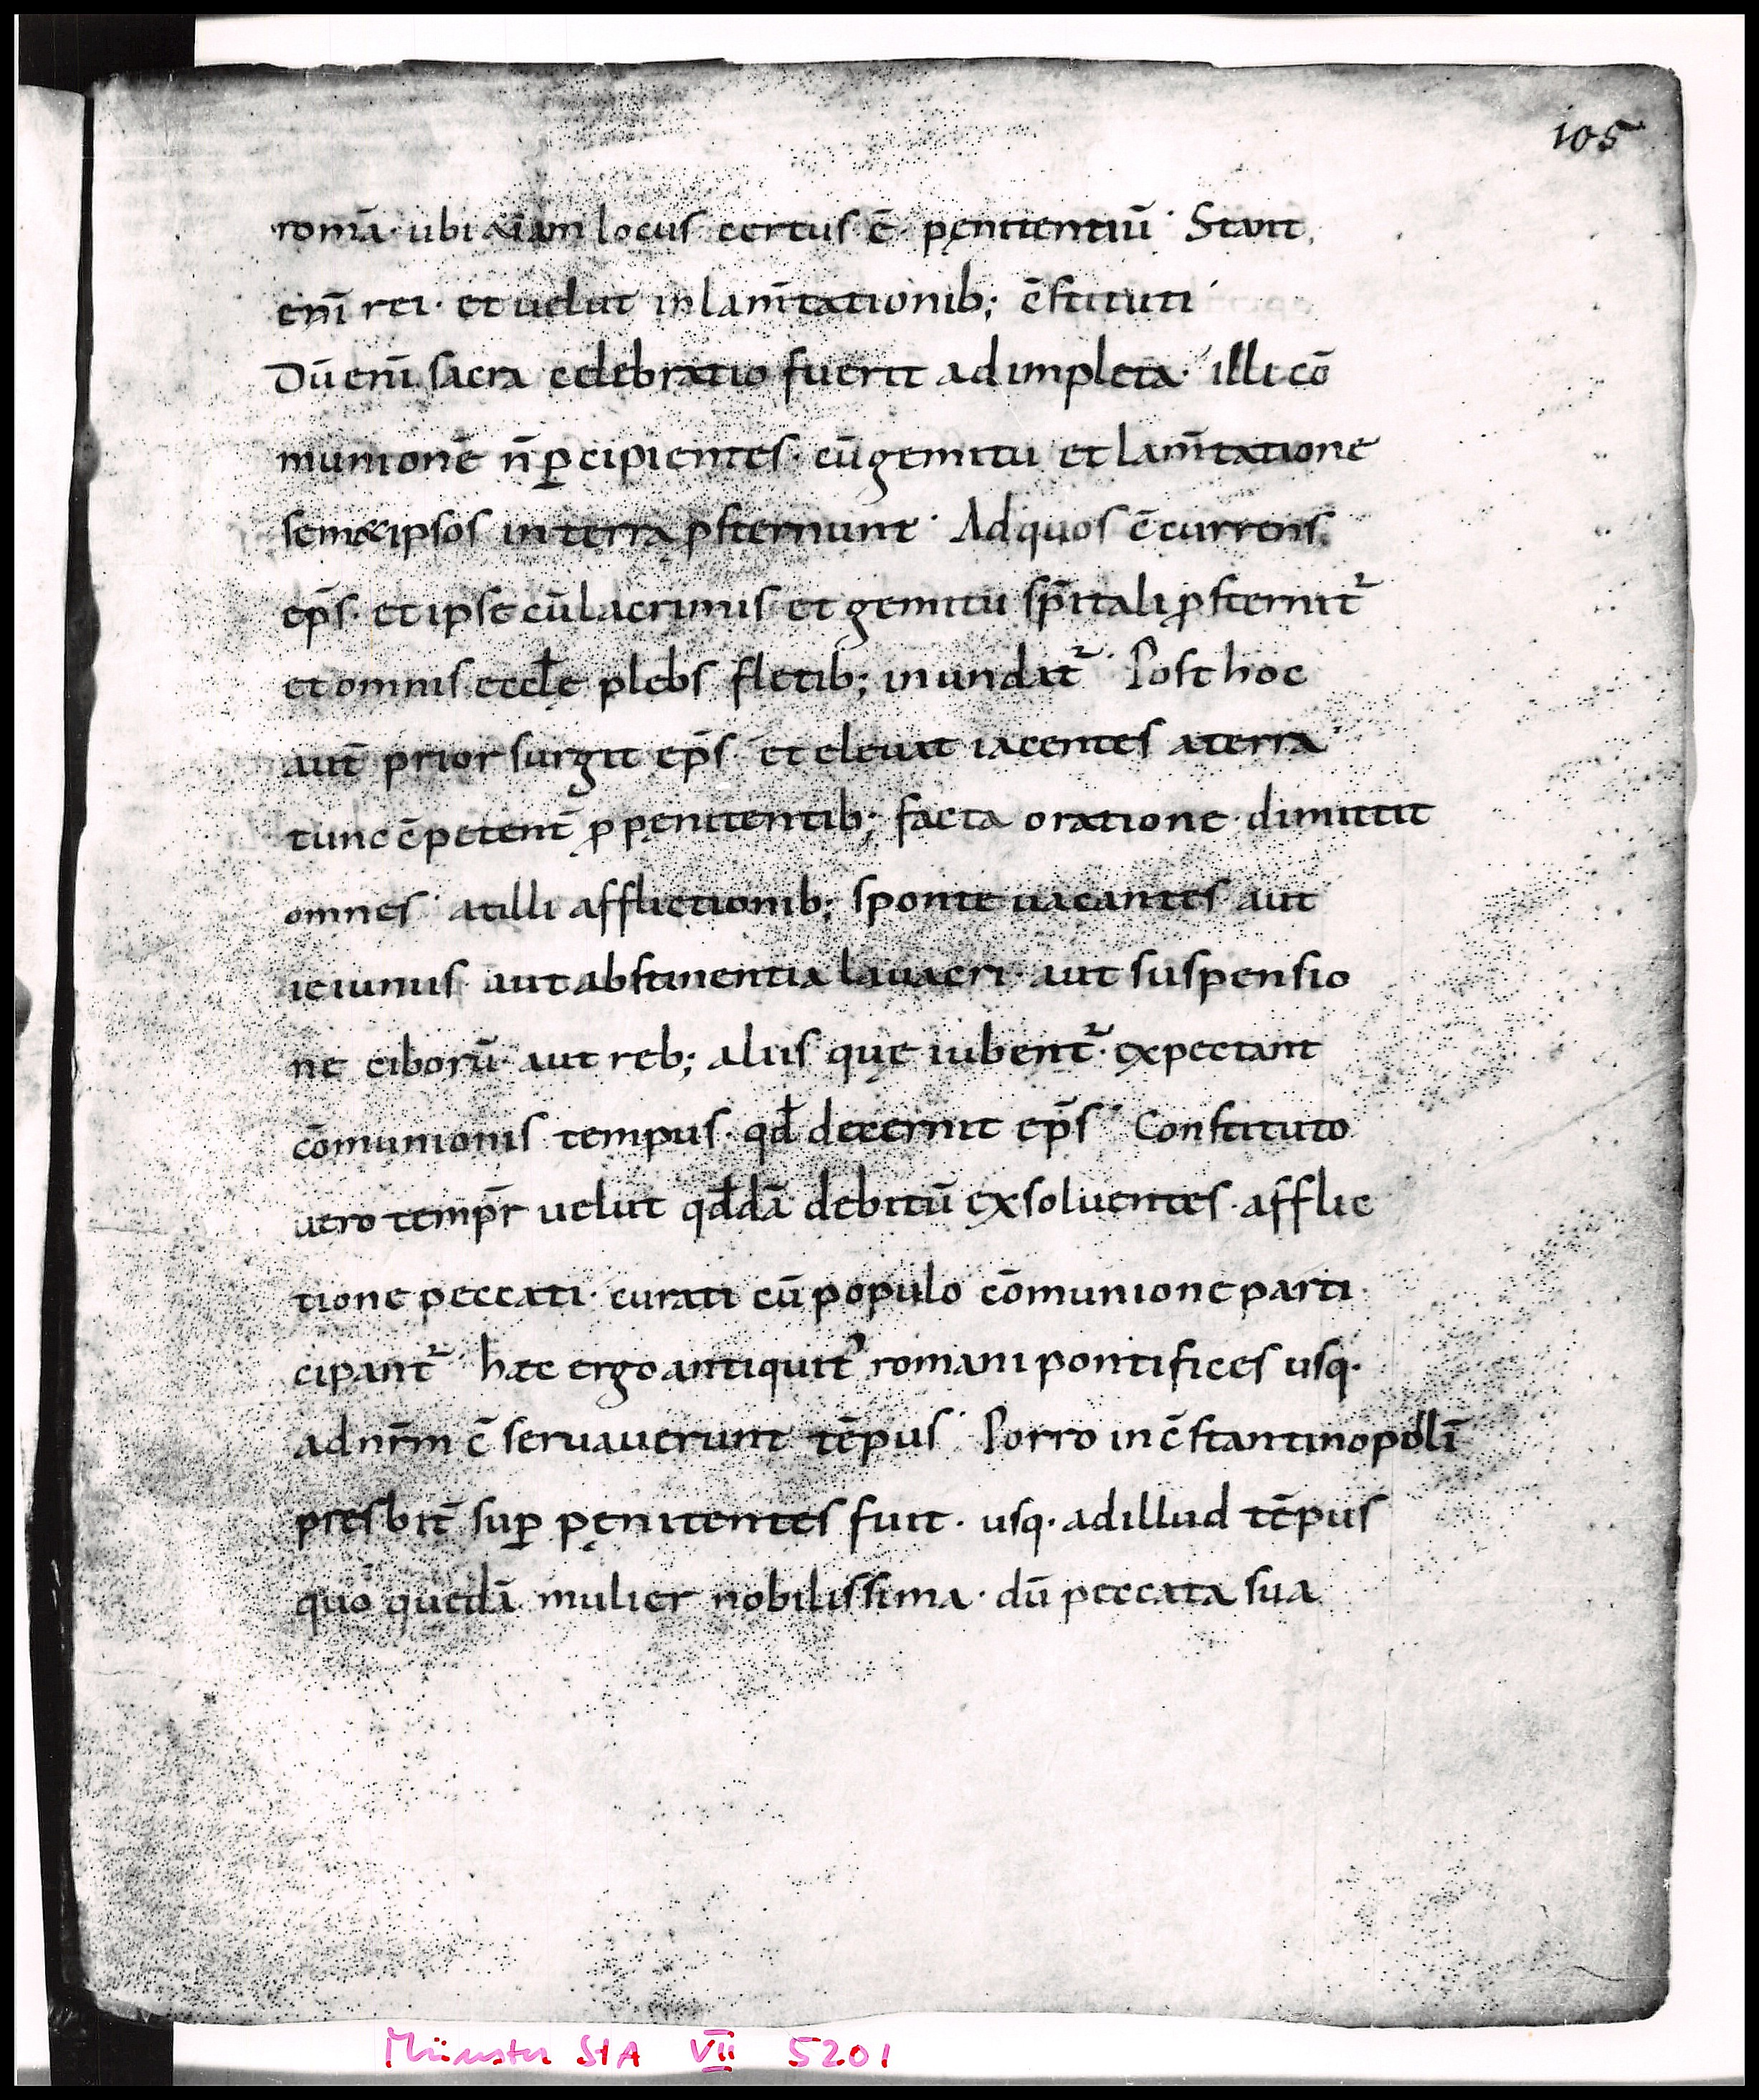 105
romā· ubi &iam locus certus ē· pęnitentiū· Stant
enī rei· et uelut in lam̄tationib; c̄stituti·
Dū enī sacra celebratio fuerit adimpleta· illi cō
munionē n̄ ꝑcipientes· cū gemitu et lam̄tatione
sem&ipsos in terrā ꝓsternunt· Ad quos c̄currens
ep̄s· et ipse cū lacrimis et gemitu sp̄itali ꝓsternit᷑
et omnis eccłę plebs fletib; inundat᷑· Post hoc
aut̄ prior surgit ep̄s· et eleuat iacentes a terra·
tunc c̄petent̄ ꝓ pęnitentib; facta oratione· dimittit
omnes· at illi afflictionib; sponte uacantes· aut
ieiuniis· aut abstinentia lauacri· aut suspensio
ne ciborū· aut reb; aliis quę iubent᷑· expectant
cōmunionis tempus· qđ decernit ep̄s· Constituto
uero temp̄r uelut qđdā debitū exsoluentes· afflic
tione peccati· curati cū populo cōmunione parti
cipant᷑· haec ergo antiquit᷑ romani pontifices usq·
ad nr̄m c̄seruauerunt tēpus· Porro in c̄stantinopolī
presbit̄ suꝑ pęnitentes fuit· usq· ad illud tēpus
quo quędā mulier nobilissima· dū peccata sua
Münster StA VII 5201